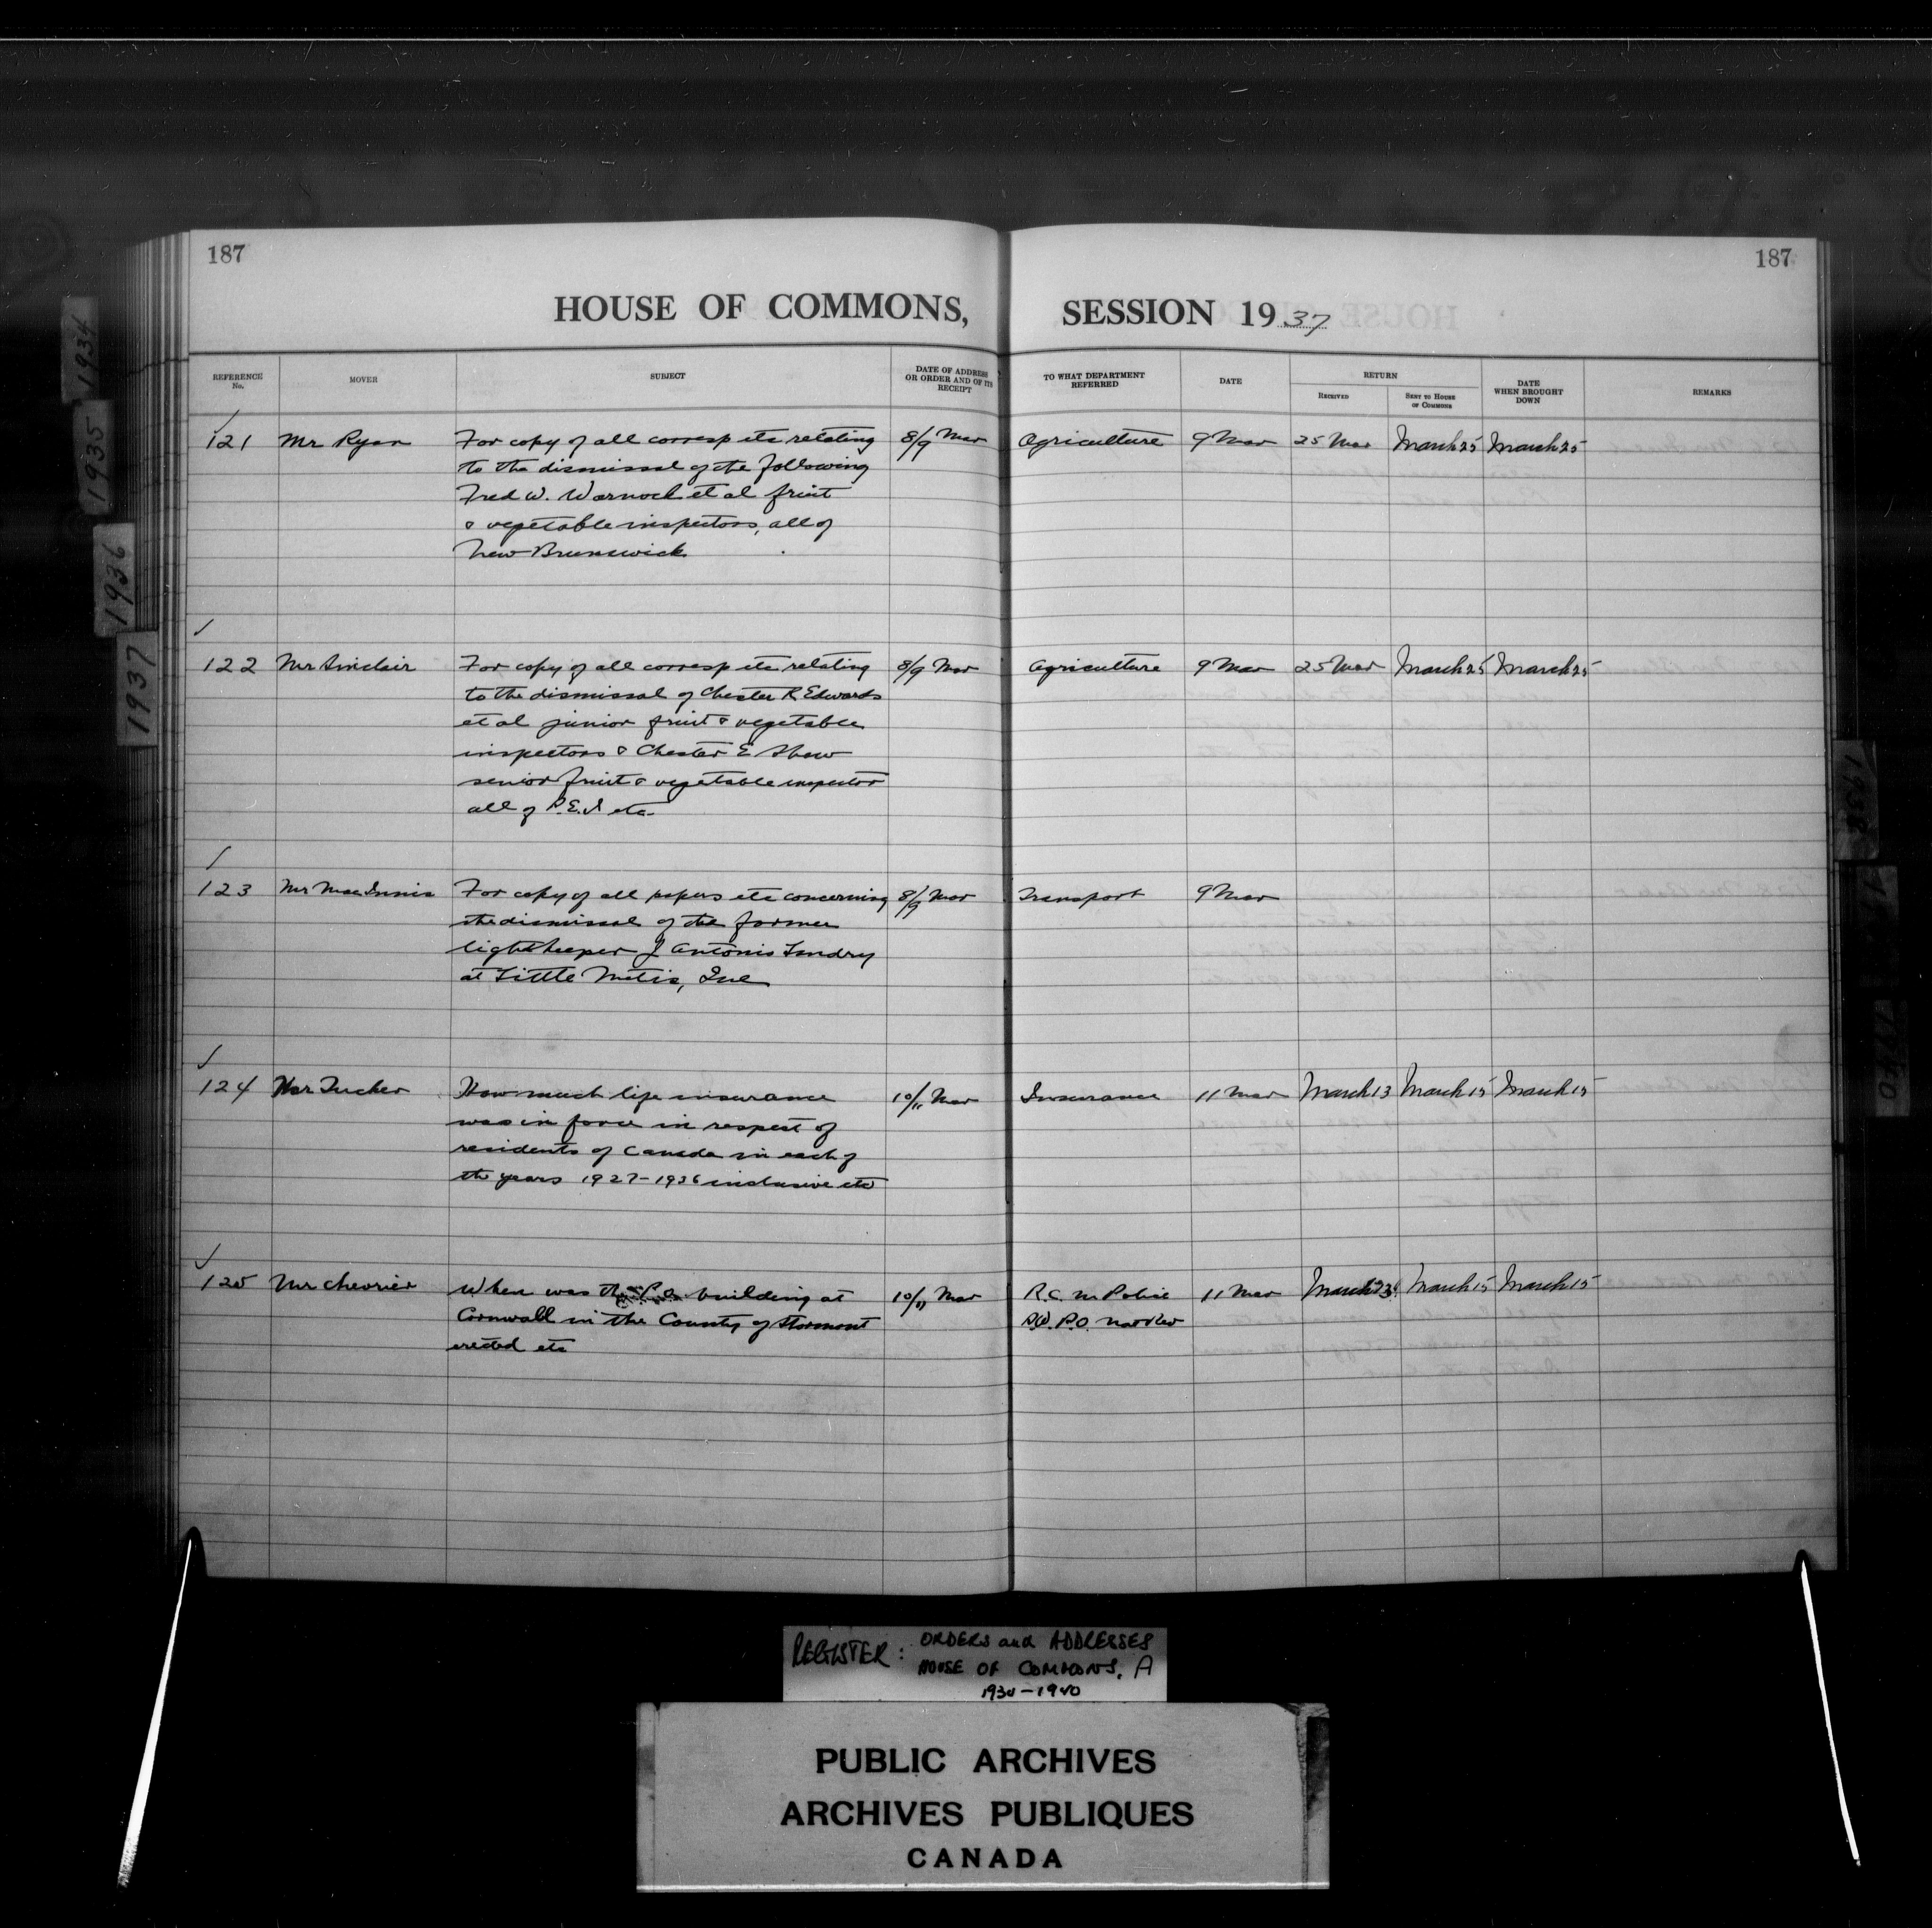 187
187
HOUSE OF COMMONS, SESSION 19 37
REFERENCE No.
MOVER
SUBJECT
DATE OF ADDRESS OR ORDER AND OF ITS RECEIPT
TO WHAT DEPARTMENT REFERRED
DATE
RETURN
RECEIVED
SENT TO HOUSE OF COMMONS
DATE WHEN BROUGHT DOWN
REMARKS
121 Mr Ryan For copy of all corresp etc relating 8/9 Mar Agriculture 9 Mar 25 Mar March 25 March 25
to the dismissal of the following
Fred W. Warnock et al fruit
& vegetable inspectors, all of
New Brunswick
122 Mr Sinclair For copy of all corresp etc relating 8/9 Mar Agriculture 9 Mar 25 Mar March 25 March 25
to the dismissal of Chester R Edwards
et al junior fruit & vegetable
inspectors & Chester E Shaw
senior fruit & vegetable inspector
all of P.E.I etc
123 Mr MacInnis For copy of all papers etc concerning 8/9 Mar Transport 9 Mar
the dismissal of the former
lightkeeper J Antonio Landry
at Little Metis, Que
124 Mr Tucker How much life insurance 10/11 Mar Insurance 11 Mar March 13 March 15 March 15
was in force in respect of
residents of Canada in each of
the years 1927-1936 inclusive etc
125 Mr Chevrier When was the P.O. building at 10/11 Mar R.C. M Police 11 Mar March March 15 March 15
Cornwall in the County of Stormont P.W. P.O. Nat Rev
erected etc
1934
1935
1936
1937
1938
1940
REGISTER: ORDERS and ADDRESSES
HOUSE OF COMMONS, A
1930-1940
PUBLIC ARCHIVES
ARCHIVES PUBLIQUES
CANADA